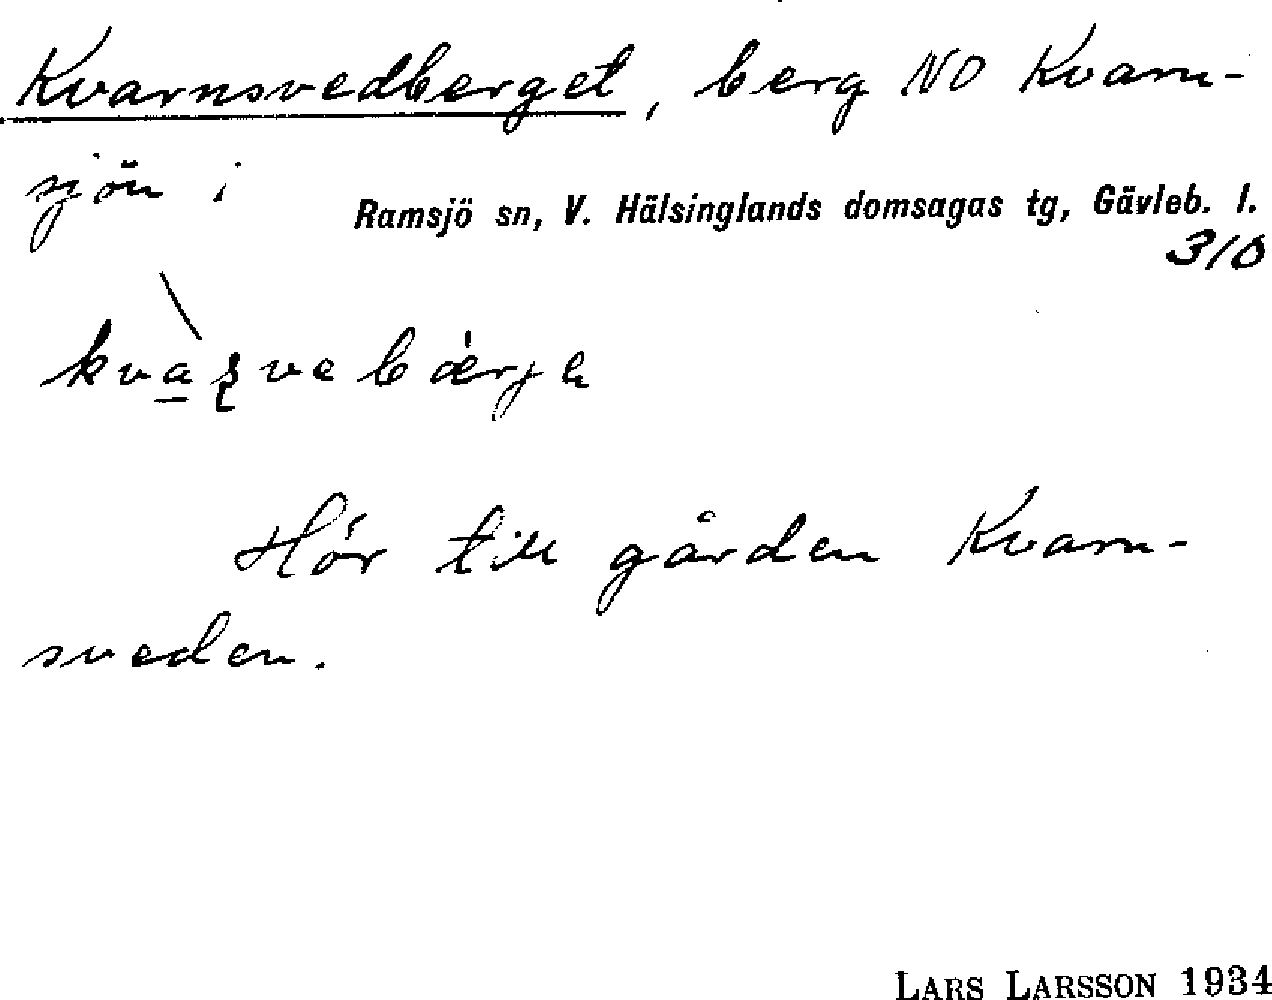 Kvarnsvedberget, berg NO Kvarn-
sjön i
Ramsjö sn, V. Hälsinglands domsagas tg, Gävleb. l.
310
Hör till gården Kvarn-
sveden.
LARS LARSSON 1934